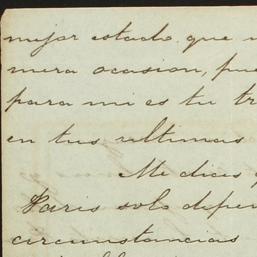 mejor estado que
mera ocasion, pue
para mi es tu tr
en tus ultimas
Me dices q
Paris solo depen
circunstancias